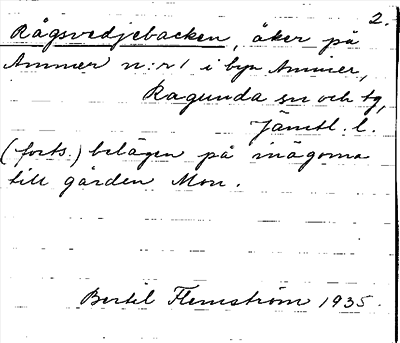 2.
Rågsvedjebacken, åker på
Ammer n:r 1 i byn Ammer,
Ragunda sn och tg,
Jämtl. l.
(forts.) belägen på inägorna
till gården Mon.
Bertil Flemström 1935.